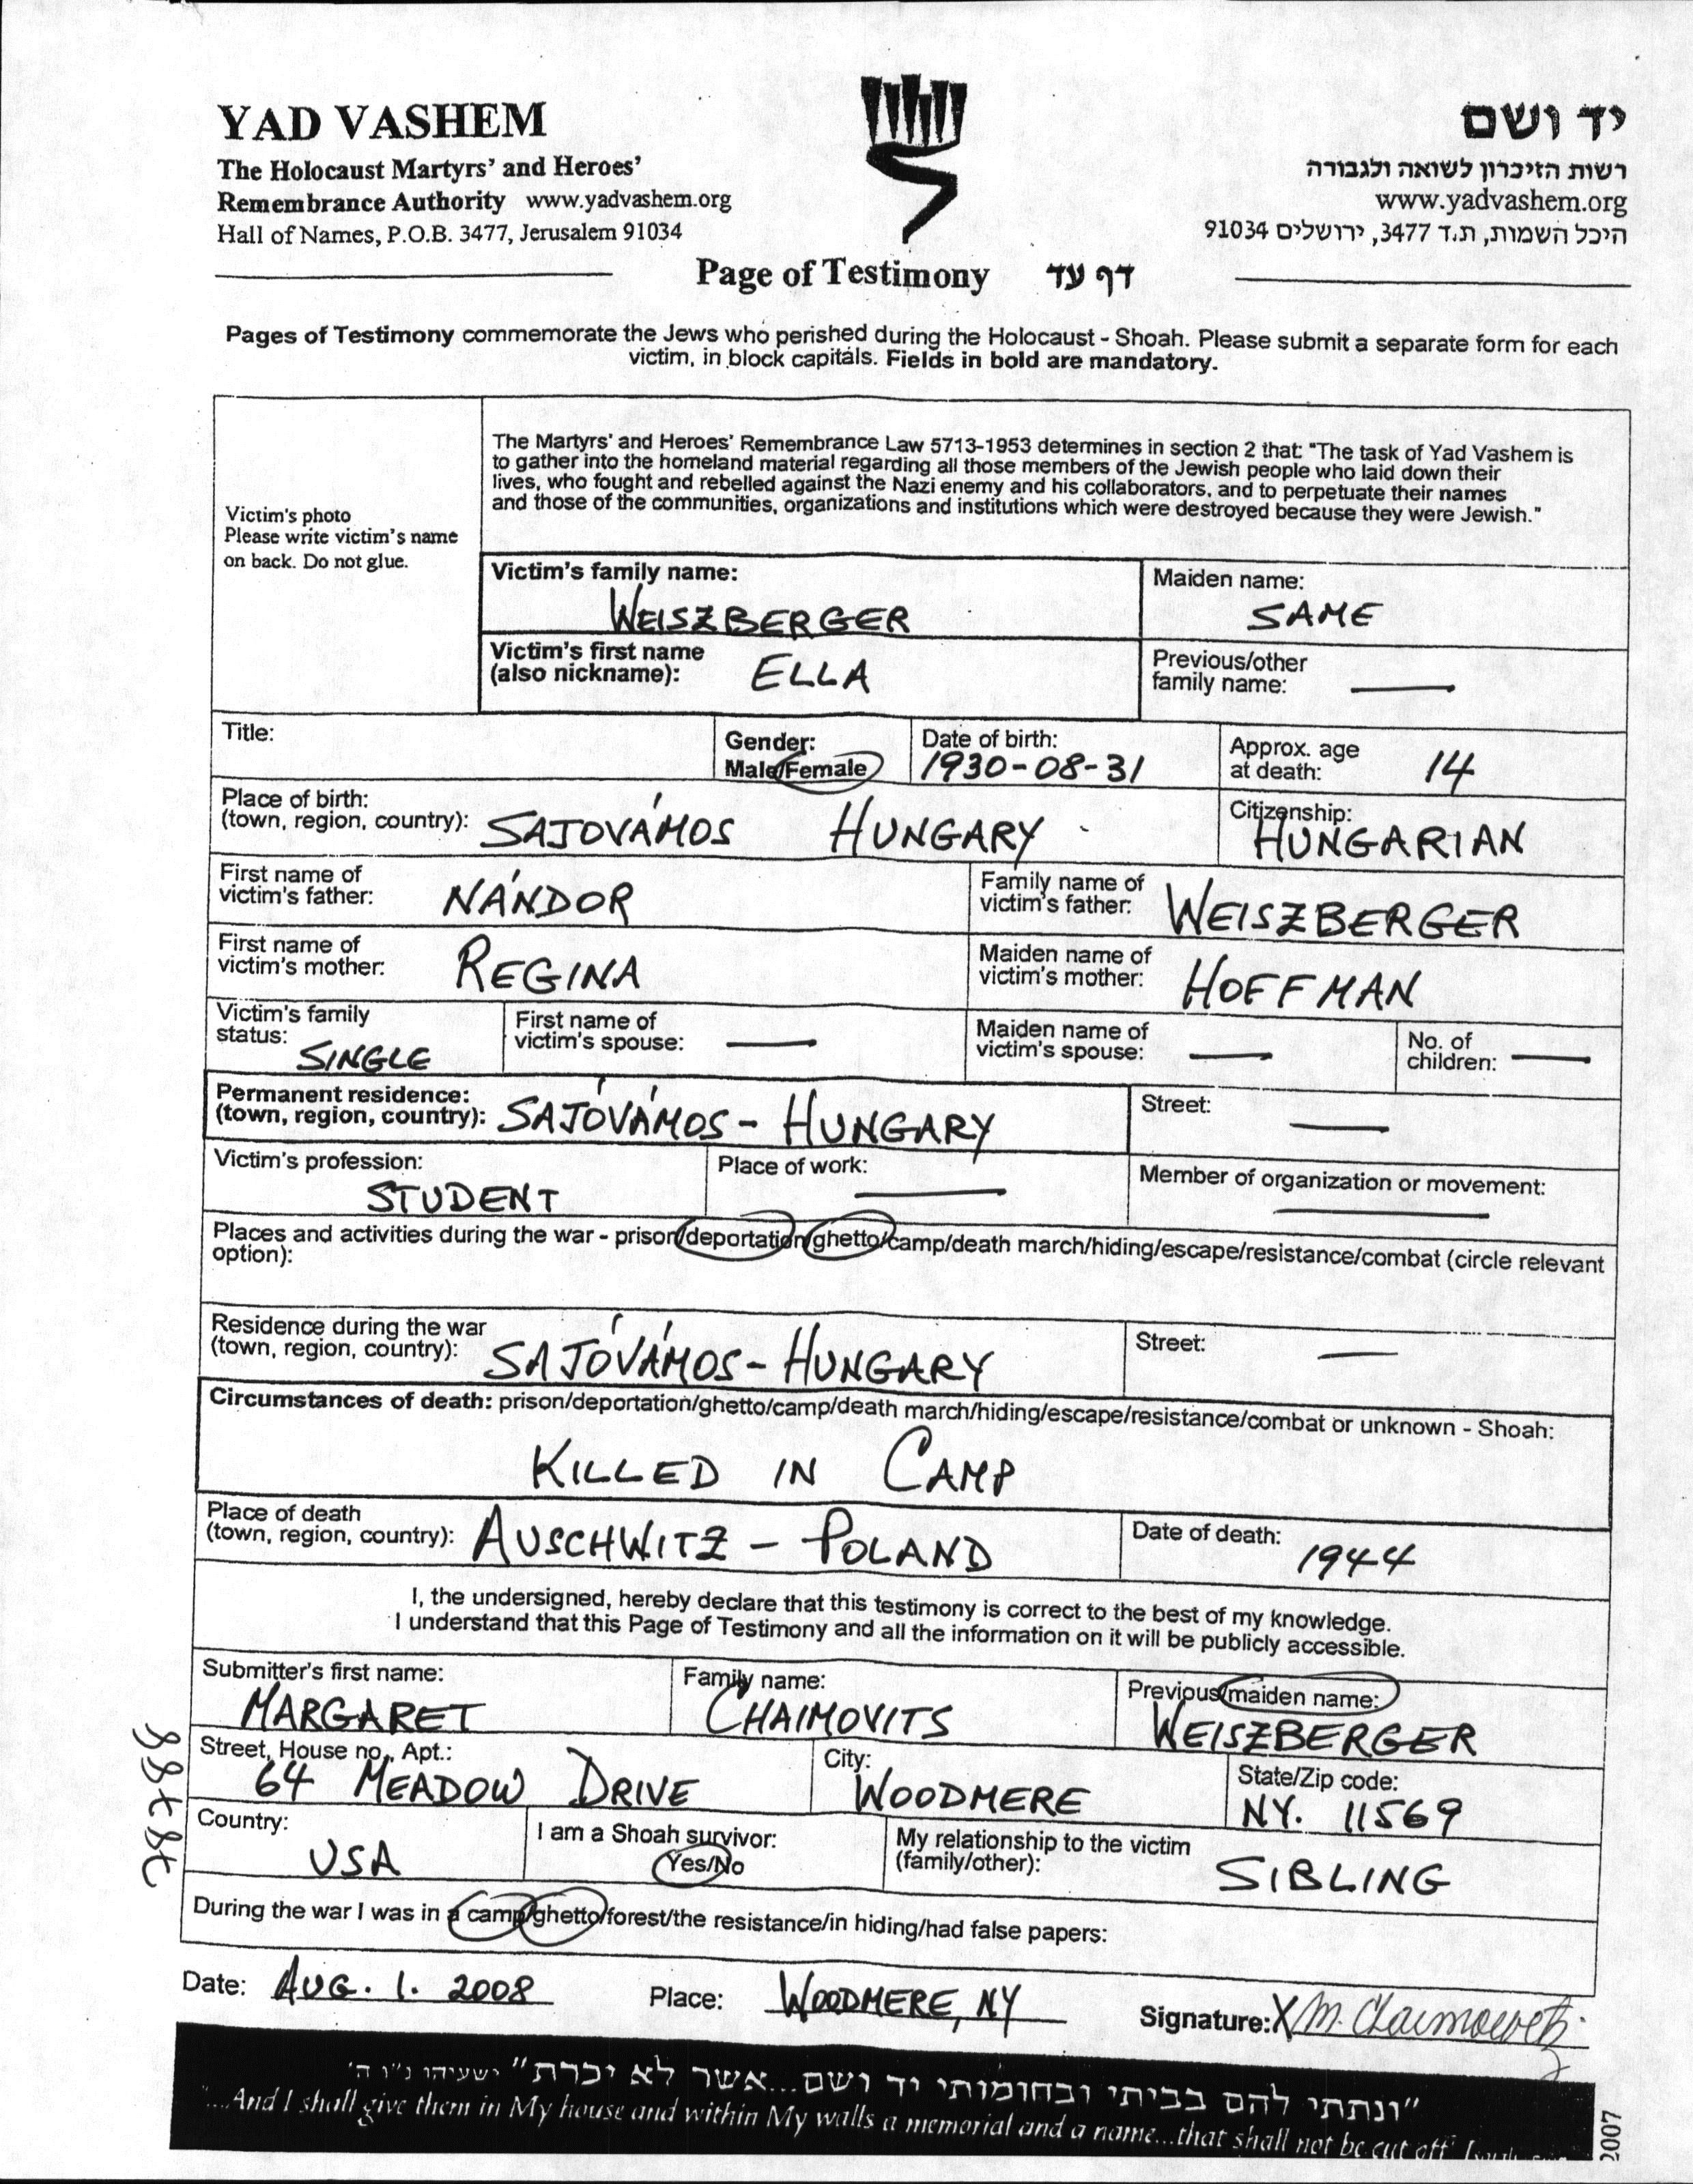 YAD VASHEM
The Holocaust Martyrs' and Heroes'
Remembrance Authority www.yadvashem.org
Hall of Names, P.O.B. 3477, Jerusalem 91034
יד ושם
רשות הזיכרון לשואה ולגבורה
www.yadvashem.org
היכל השמות, ת.ד 3477, ירושלים 91034
Page of Testimony דף עד
Pages of Testimony commemorate the Jews who perished during the Holocaust - Shoah. Please submit a separate form for each
victim, in block capitals. Fields in bold are mandatory.
Victim's photo
Please write victim's name
on back. Do not glue.
The Martyrs' and Heroes' Remembrance Law 5713-1953 determines in section 2 that: "The task of Yad Vashem is
to gather into the homeland material regarding all those members of the Jewish people who laid down their
lives, who fought and rebelled against the Nazi enemy and his collaborators, and to perpetuate their names
and those of the communities, organizations and institutions which were destroyed because they were Jewish."
Victim's family name: WEISZBERGER
Maiden name: SAME
Victim's first name
(also nickname): ELLA
Previous/other
family name: —
Title:
Gender:
Male/Female
Date of birth:
1930-08-31
Approx. age
at death: 14
Place of birth:
(town, region, country): SAJOVÁMOS HUNGARY
Citizenship:
HUNGARIAN
First name of
victim's father: NÁNDOR
Family name of
victim's father: WEISZBERGER
First name of
victim's mother: REGINA
Maiden name of
victim's mother: HOFFMAN
Victim's family
status: SINGLE
First name of
victim's spouse: —
Maiden name of
victim's spouse: —
No. of
children: —
Permanent residence:
(town, region, country): SAJÓVÁMOS - HUNGARY
Street: —
Victim's profession:
STUDENT
Place of work: —
Member of organization or movement: —
Places and activities during the war - prison/deportation/ghetto/camp/death march/hiding/escape/resistance/combat (circle relevant
option):
Residence during the war
(town, region, country): SAJÓVÁMOS - HUNGARY
Street: —
Circumstances of death: prison/deportation/ghetto/camp/death march/hiding/escape/resistance/combat or unknown - Shoah:
KILLED IN CAMP
Place of death
(town, region, country): AUSCHWITZ - POLAND
Date of death: 1944
I, the undersigned, hereby declare that this testimony is correct to the best of my knowledge.
I understand that this Page of Testimony and all the information on it will be publicly accessible.
Submitter's first name:
MARGARET
Family name:
CHAIMOVITS
Previous/maiden name:
WEISZBERGER
Street, House no., Apt.:
64 MEADOW DRIVE
City:
WOODMERE
State/Zip code:
NY. 11569
Country:
USA
I am a Shoah survivor:
Yes/No
My relationship to the victim
(family/other): SIBLING
During the war I was in a camp/ghetto/forest/the resistance/in hiding/had false papers:
Date: AUG. 1. 2008 Place: WOODMERE, NY Signature: X M. Chaimovits
"ונתתי להם בביתי ובחומותי יד ושם...אשר לא יכרת" ישעיהו נ"ו ה'
"...And I shall give them in My house and within My walls a memorial and a name...that shall not be cut off"
2007